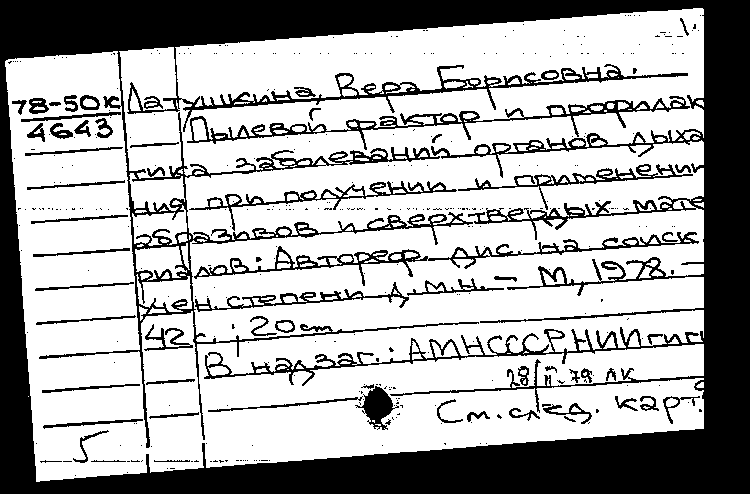 1.
78-50к Латушкина, Вера Борисовна.
4643 Пылевой фактор и профилак
тика заболеваний органов дыха
ния при получении и применении
абразивов и сверхтвердых мате
риалов: Автореф. дис. на соиск.
учен. степени д.м.н. – М., 1978. –
42 с.; 20 см.
В надзаг.: АМН СССР, НИИ гиги
28/II-78 ЛК
См. след. карт.
5